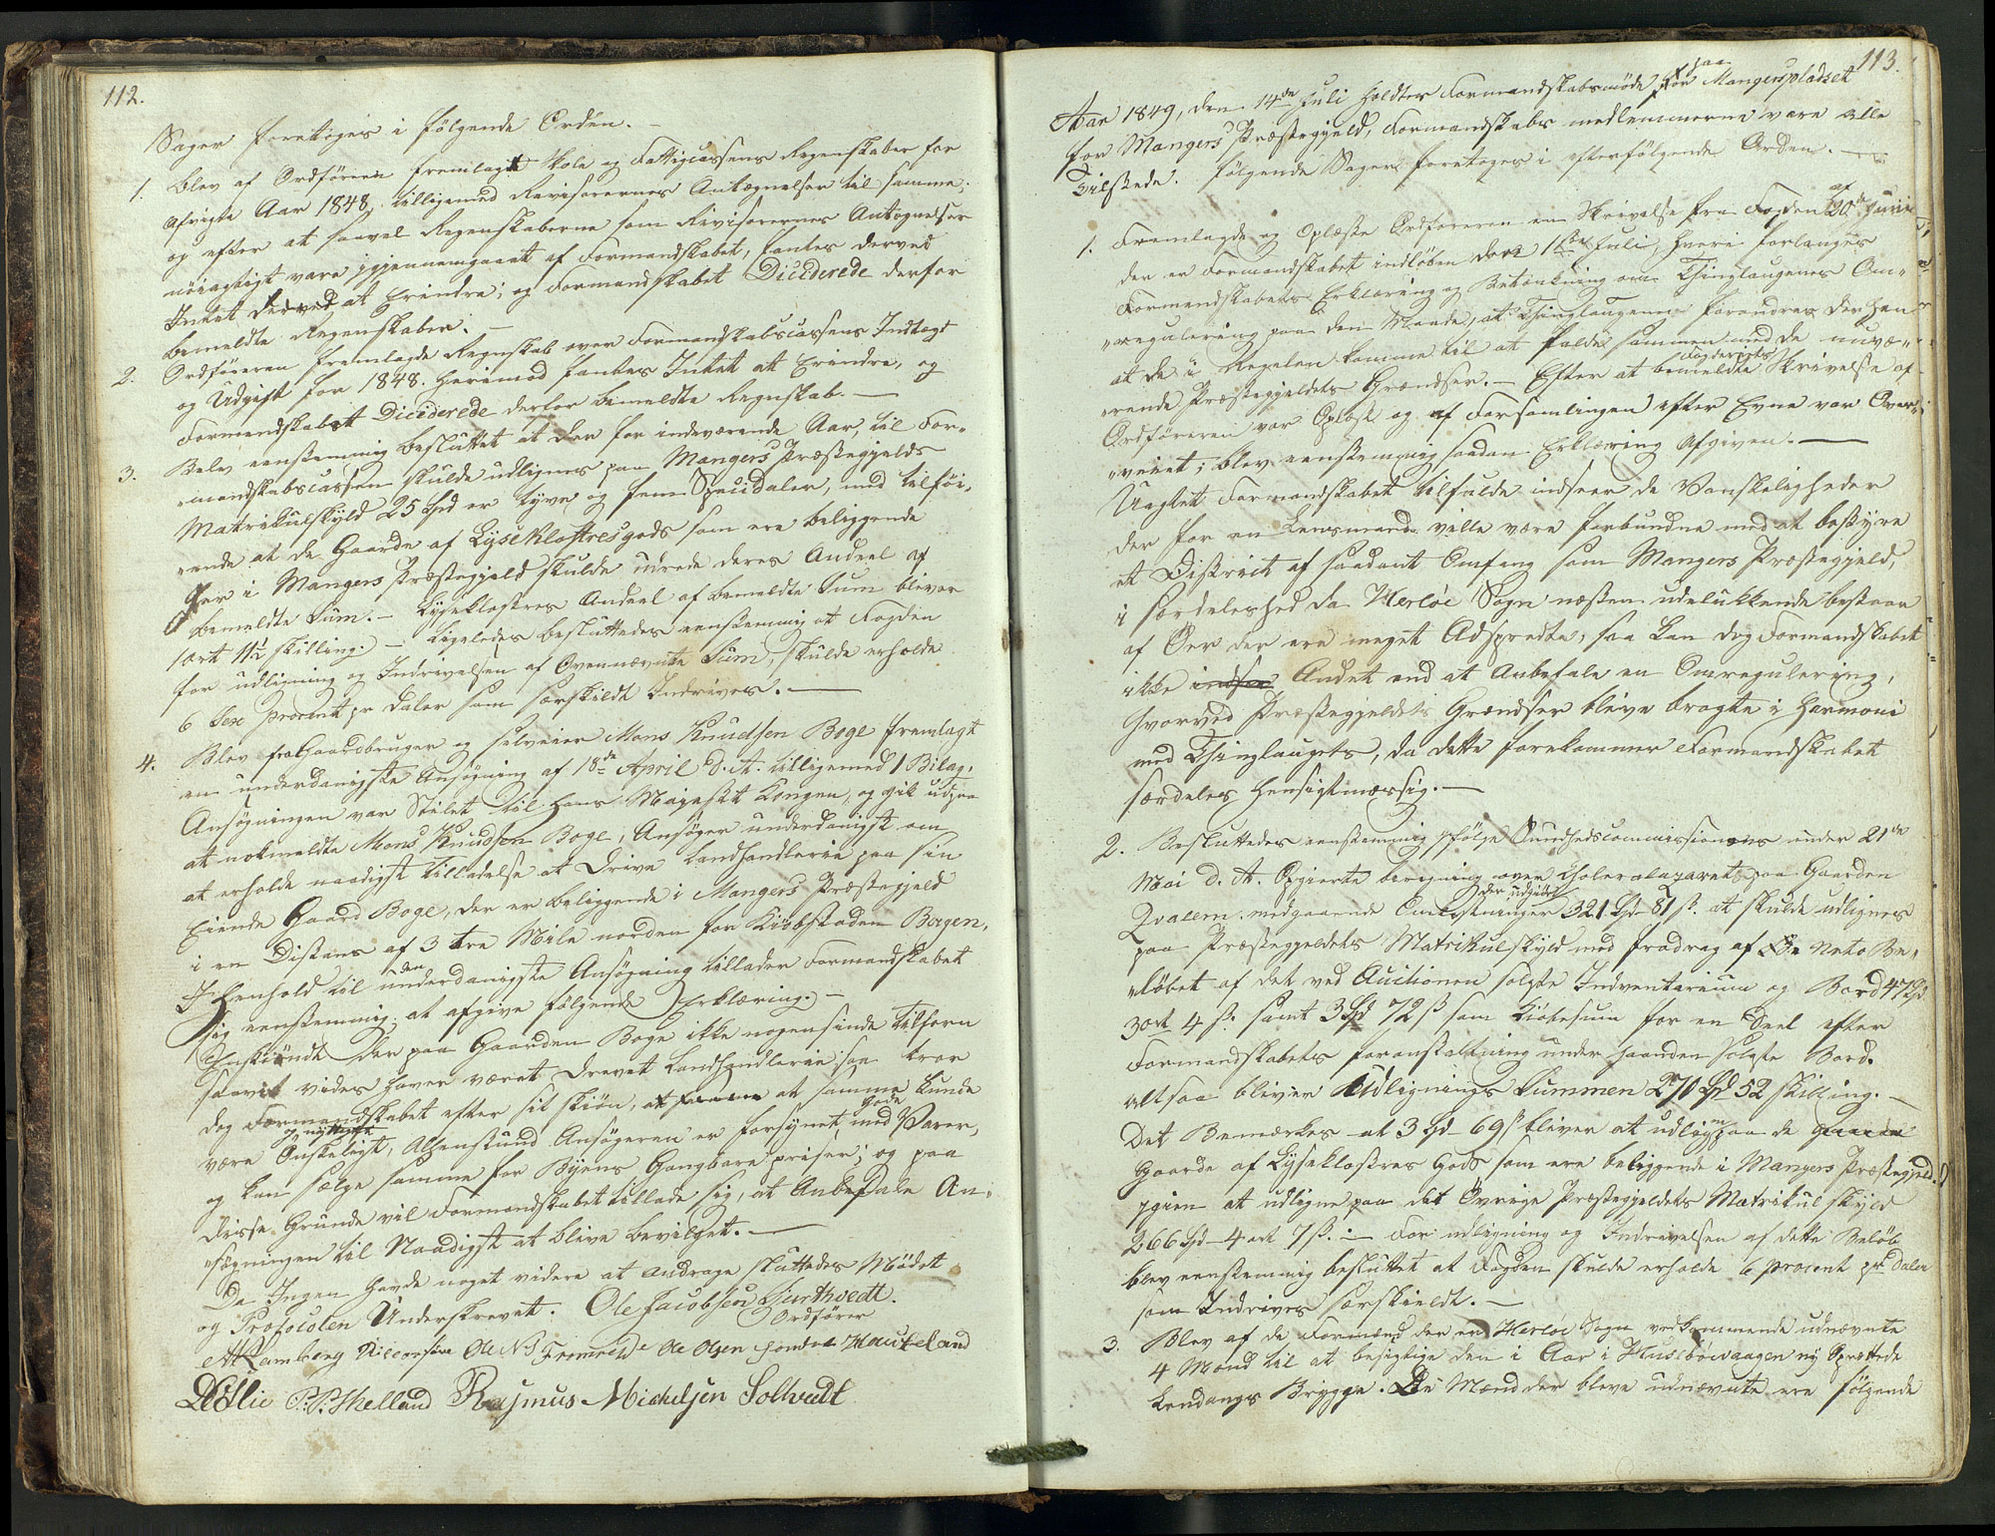 112.
Sager foretoges i følgende Orden. –
1. Blev af Ordføreren fremlagt Skole og Fattigcassens Regenskaber for
afvigte Aar 1848, tilligemed Revisorernes Antegnelser til samme;
og efter at saavel Regenskaberne som Revisorernes Antegnelser
nøiagtigt vare igjennemgaaet af Formandskabet, fantes derved
Intet derved at Erindre; og Formandskabet Diciderede derfor
bemeldte Regenskaber. –
2. Ordføreren fremlagde Regnskab over Formandskabscassens Indtægt
og Udgift for 1848. Herimod fantes Intet at Erindre, og
Formandskabet Diciderede derfor bemeldte Regnskab. –
3. Belev eenstemmig besluttet at der for indeværende Aar, til For-
mandskabscassen skulde udlignes paa Mangers Præstegjelds
Matrikulskyld 25 Spd er tyve og fem Specidaler, med tilføi-
ende at de Gaarde af Lyseklostresgods som ere beliggende
her i Mangers Præstegjeld skulde udrede deres Andeel af
bemeldte Sum. – Lyseklostres Andeel af bemeldte Sum bliver
1 ort 11½ skilling. – Ligeledes besluttedes eenstemmig at Fogden
for udligning og Indrivelsen af Ovennævnte Sum, skulde erholde
6 sex procent pr Daler som særskildt Indrives. –
4. Blev fra Gaardbruger og selveier Mons Knudsen Boge fremlagt
en underdanigste Ansøgning af 18de April d. A. tilligemed 1 Bilag.
Ansøgningen var Stilet til Hans Majestæt Kongen, og gik ud paa
at nokmeldte Mons Knudsen Boge, Ansøger underdanigst om
at erholde naadigst Tilladelse at Drive Landhandlerie paa sin
Eiende Gaard Boge, der er beliggende i Mangers Præstegjeld
i en Distans af 3 tre Mile norden for Kiøbstaden Bergen,
I Henhold til den underdanigste Ansøgning tillader Formandskabet
sig eenstemmig at afgive følgende Erklæring. –
Enskiøndt der paa Gaarden Boge ikke nogensinde tilforn
saavit vides haver været drevet Landhandlerie saa tror
dog Formandskabet efter sit skiøn, at samme at samme kunde
være Ønskeligt og nyttigt, Alhenstund Ansøgeren er forsynet med gode Varer,
og kan sælge samme for Byens Gangbare priser; og paa
disse Grunde vil Formandskabet tillade sig, at Anbefale An-
søgningen til Naadigst at blive bevilget. –
Da Ingen havde noget videre at andrage sluttedes Mødet
og Protocolen Underskrevet. Ole Jacobsen Hjurthvedt.
Ordfører
A Ramberg Ole Olsen Hauge­land
P. P. Skelland Rasmus Michelsen Soltvedt
113.
Aar 1849, den 14de Juli holdtes Formandskabsmøde for paa Mangerspladset
for Mangers Præstegjeld, Formandskabs medlemmerne vare alle
tilstede. følgende Sager foretoges i efterfølgende Orden. –
1. Fremlagde og Oplæste Ordføreren en Skrivelse fra Fogden af 20de Juni
der er Formandskabet indløben den 1ste Juli, hvori forlanges
Formandskabets Erklæring og Betænkning om Thinglaugenes Om-
regulering paa den Maade, at Thinglaugene forandres derhen
at de i Regelen komme til at falde sammen med de nuvæ-
rende Præstegjeldets Grændser. – Efter at bemeldte Fogderiets Skrivelse af
Ordføreren var Oplæst og af Forsamlingen efter Evne var Over-
veiet; blev eenstemmig saadan Erklæring Afgiven. –
Uagtet Formandskabet tilfulde indseer de Vanskeligheder
der for en Lensmand ville være forbundne med at bestyre
et District af saadant Omfang som Mangers Præstegjeld,
i særdeleshed da Herløe Sogn næsten udelukkende bestaar
af Øer der ere meget Adspredte, saa kan dog Formandskabet
ikke indsee Andet end at Anbefale en Omregulering,
hvorved Præstegjeldets Grændser blive bragte i Harmoni
med Thinglaugets, da dette forekommer Formandskabet
særdeles Hensigtmæssig. –
2. Besluttedes eenstemmig ifølge Sundhedscommissionens under 21de
Mai d. A. Opgierte beregning over Choleralazaret paa Gaarden
Qvalem medgaaende Omkostninger der udgiør 321 Spd 81 ß. at skulde udlignes
paa Præstegjeldets Matrikulskyld med fradrag af De Netto Be-
løbet af det ved Auctionen solgte Indventarium og Bord 47 Spd
3 ort 4 ß. samt 3 Spd 72 ß som Kiøbesum for en Seel efter
Formandskabets foranstaltning under haanden solgte Bord.
altsaa bliver Udlignings Summen 270 Spd 52 skilling. –
Det Bemærkes at 3 Spd 69 ß bliver at udligne paa de Gaarde
Gaarde af Lyseklostres Gods som ere beliggende i Mangers Præstegjeld.
igien at udligne paa det Øvrige Præstegjeldets Matrikul skyld
266 Spd – 4 ort 7 ß. – For udligning og Indrivelsen af dette Beløb
blev eenstemmig besluttet at Fogden skulde erholde 6 procent pr Daler
som Indrives særskieldt. –
3. Blev af de Formænd der er Herløe Sogn vedkommende udnævnte
4 Mænd til at besigtige den i Aar i Husebøevaagen ny Oprættede
Landgangs Brygge. De Mænd der bleve udnævnte ere følgende